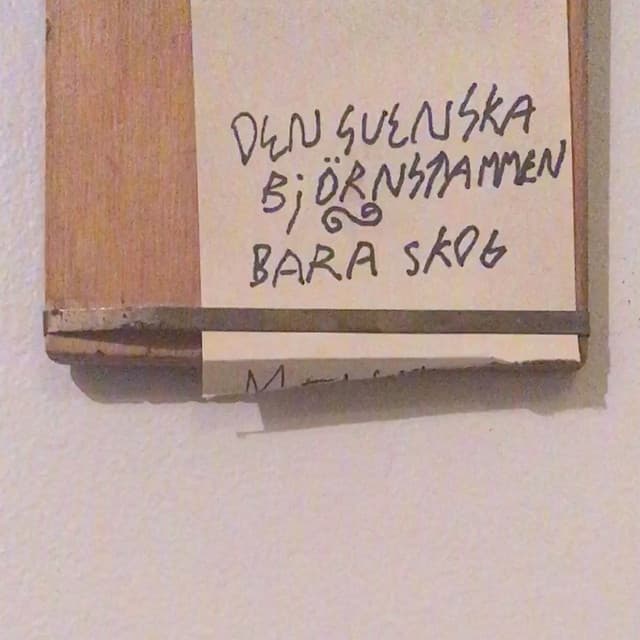 DEN SVENSKA
BjÖRNSTAMMEN
BARA SKOG